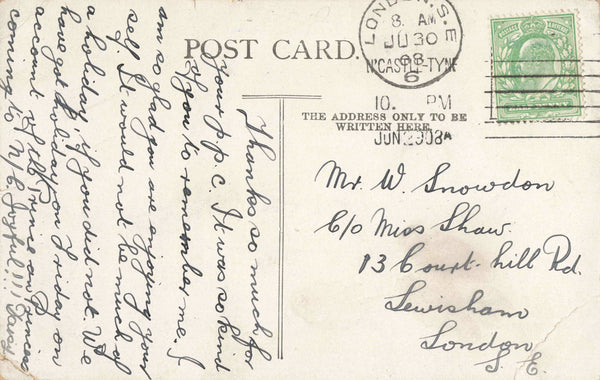 POST CARD.
THE ADDRESS ONLY TO BE
WRITTEN HERE.
LONDON. S.E
8. AM
JU 30
08
6
N'CASTLE-TYNE
10. PM
JUN 29 08
Thanks so much for
your p.p.c. It was so kind
of you to remember me. I
am so glad you are enjoying your
self. It would not be much of
a holiday if you did not. We
have got holiday on Friday on
account of the Prince and Princess
coming to N/C Joyful!!!
Mr. W. Snowdon
C/o Miss Shaw.
13 Court-hill Rd.
Lewisham
London
S. E.